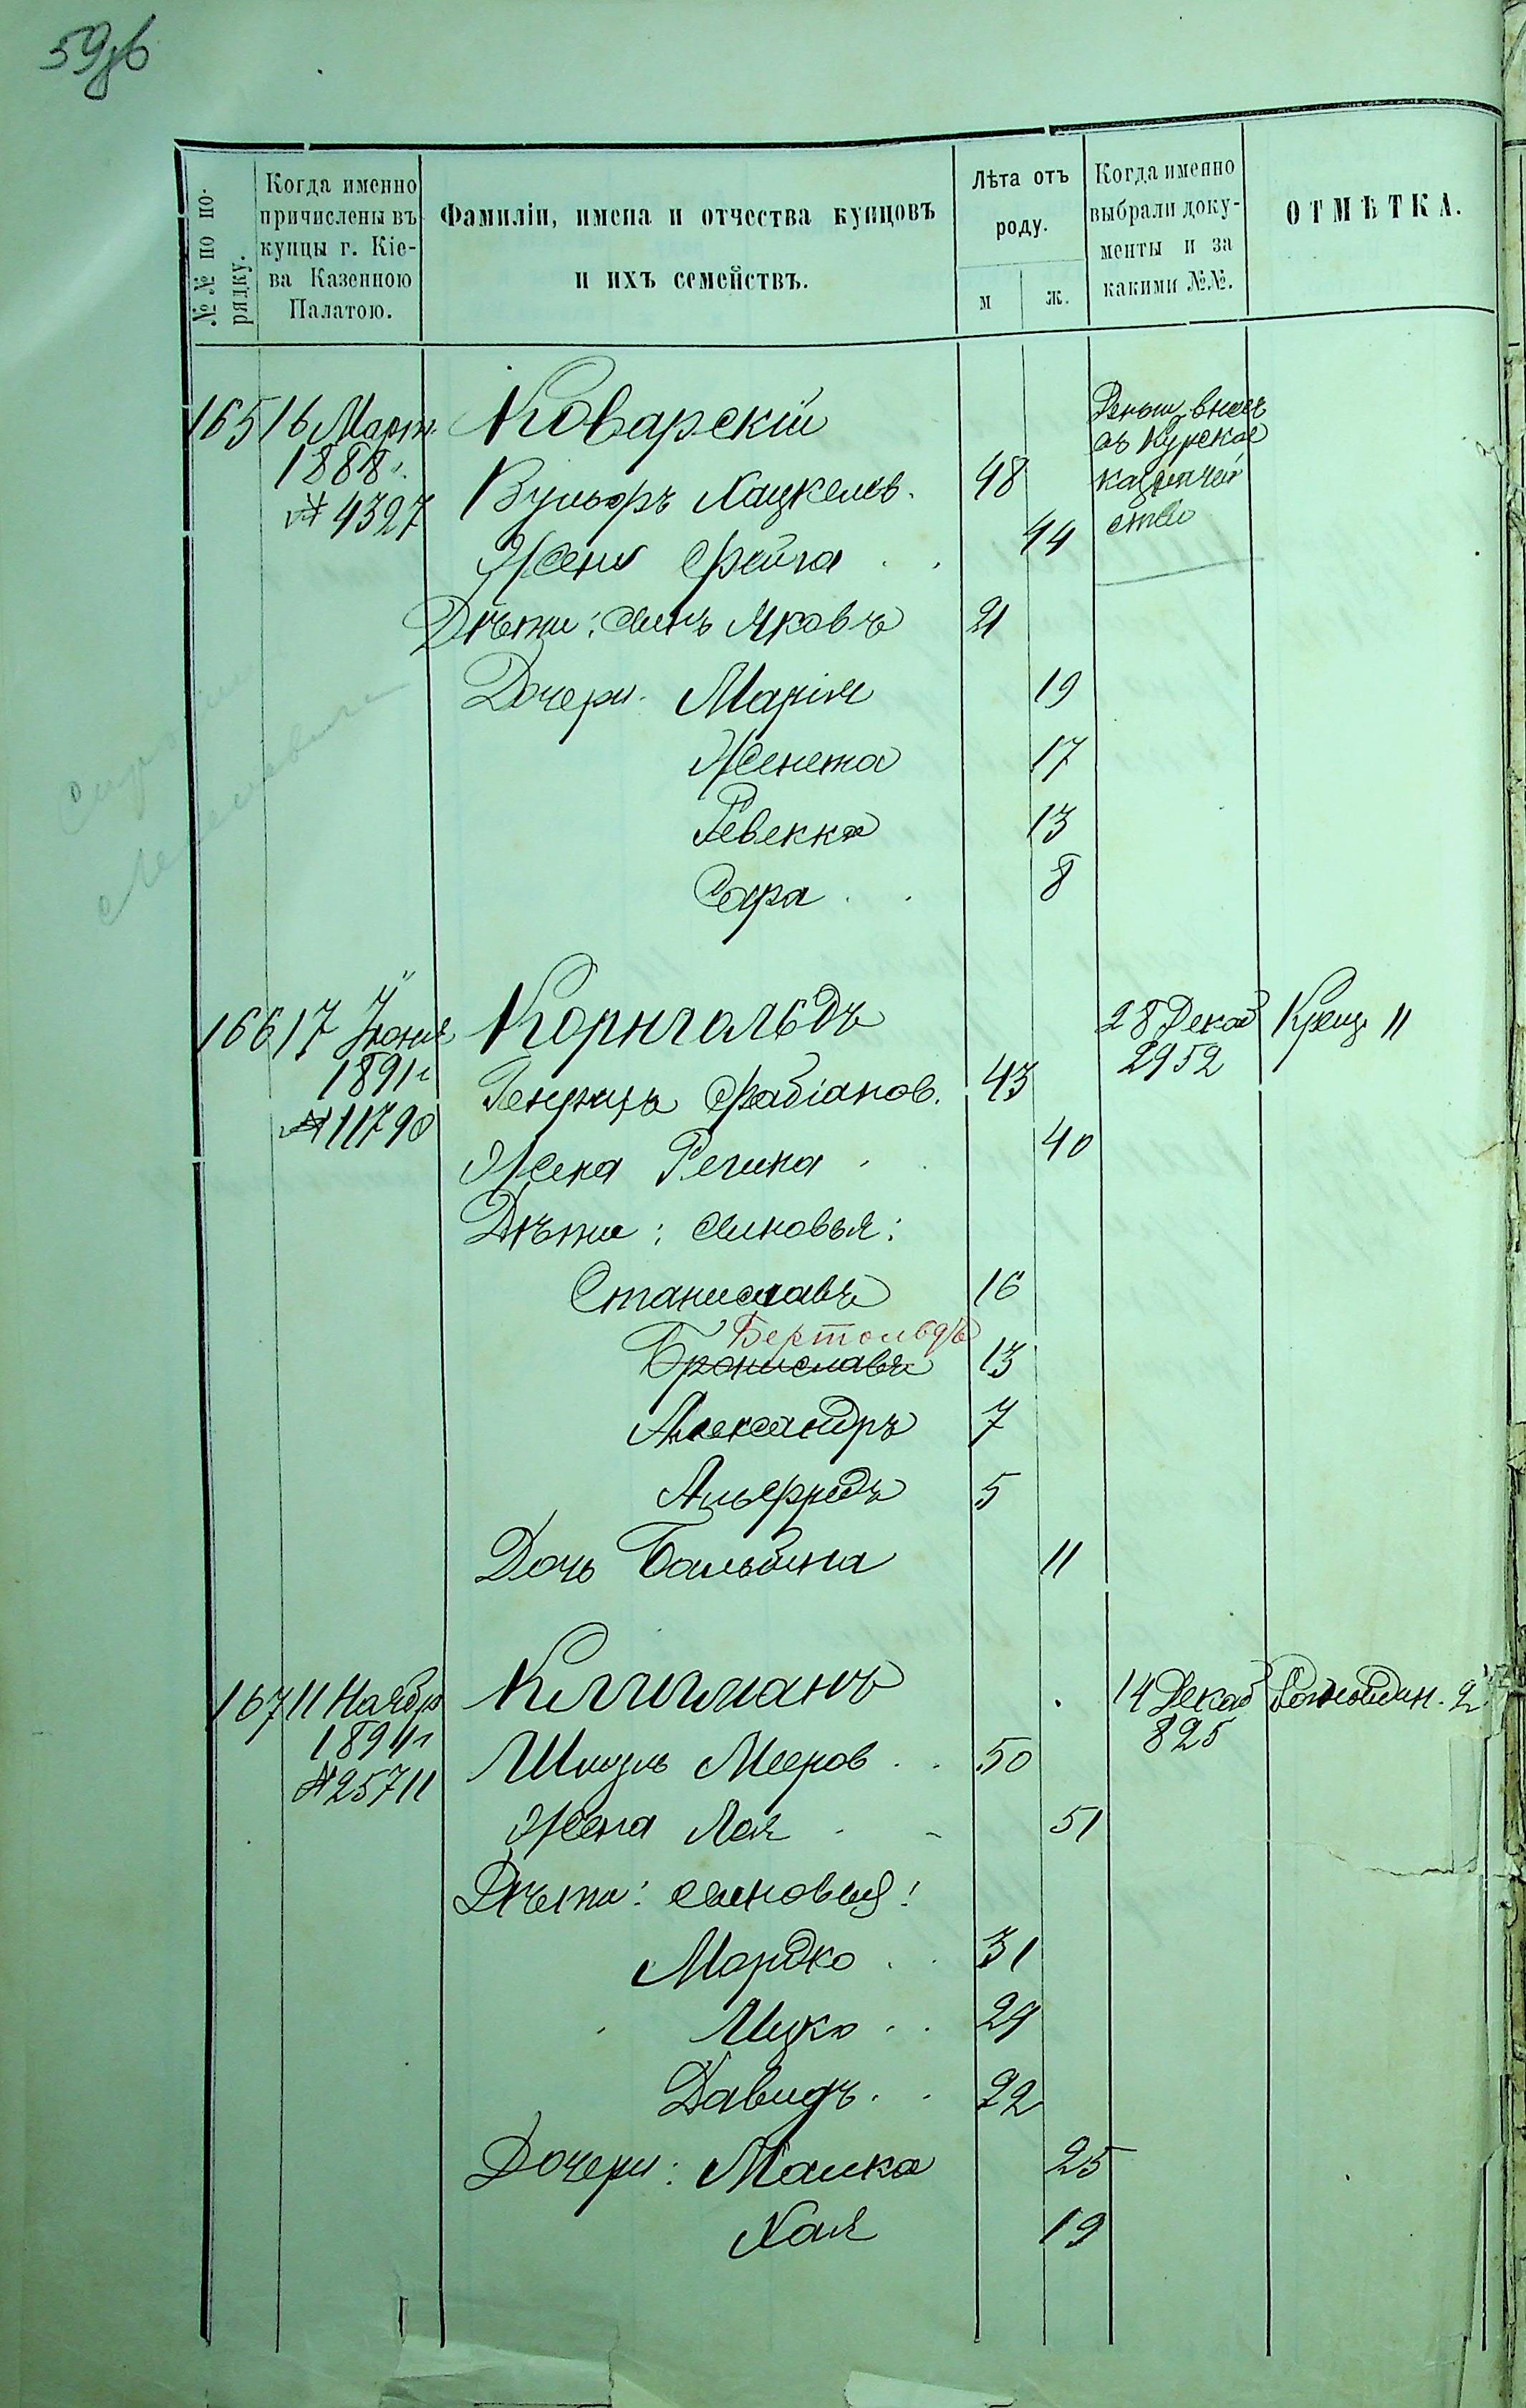 59об
№№ по по-
рядку.
Когда именно
причислены въ
купцы г. Кіе-
ва Казенною
Палатою.
Фамиліи, имена и отчества купцовъ
и ихъ семействъ.
Лѣта отъ
роду.
м
ж.
Когда именно
выбрали доку-
менты и за
какими №№.
ОТМѢТКА.
165 16 Март. Коварскій
1888 г.
№ 4327
Вульфъ Хацкелев. 48
Деньги внесъ
въ Курское
казначей
ство
Жена Фейга 44
Дѣти: сынъ Яковъ 21
Дочери Марія 19
Женета 17
Ревекка 13
Сара 8
166 17 Іюня Корнгольдъ 28 Декаб Крещ. 11
1891 г. 2952
№ 11790
Генрихъ Фабіанов. 43
Жена Регина 40
Дѣти: сыновья:
Станиславъ 16
Бертольдъ
Брониславъ 13
Александръ 7
Альфредъ 5
Дочь Бальбина 11
167 11 Ноября 14 Декаб
1891 г. 825
№ 25711
Шмуль Мееров 50
Жена Лея 51
Дѣти: сыновья:
Мордко 31
Ицко 24
Давидъ 22
Дочери: Малка 25
Хая 19